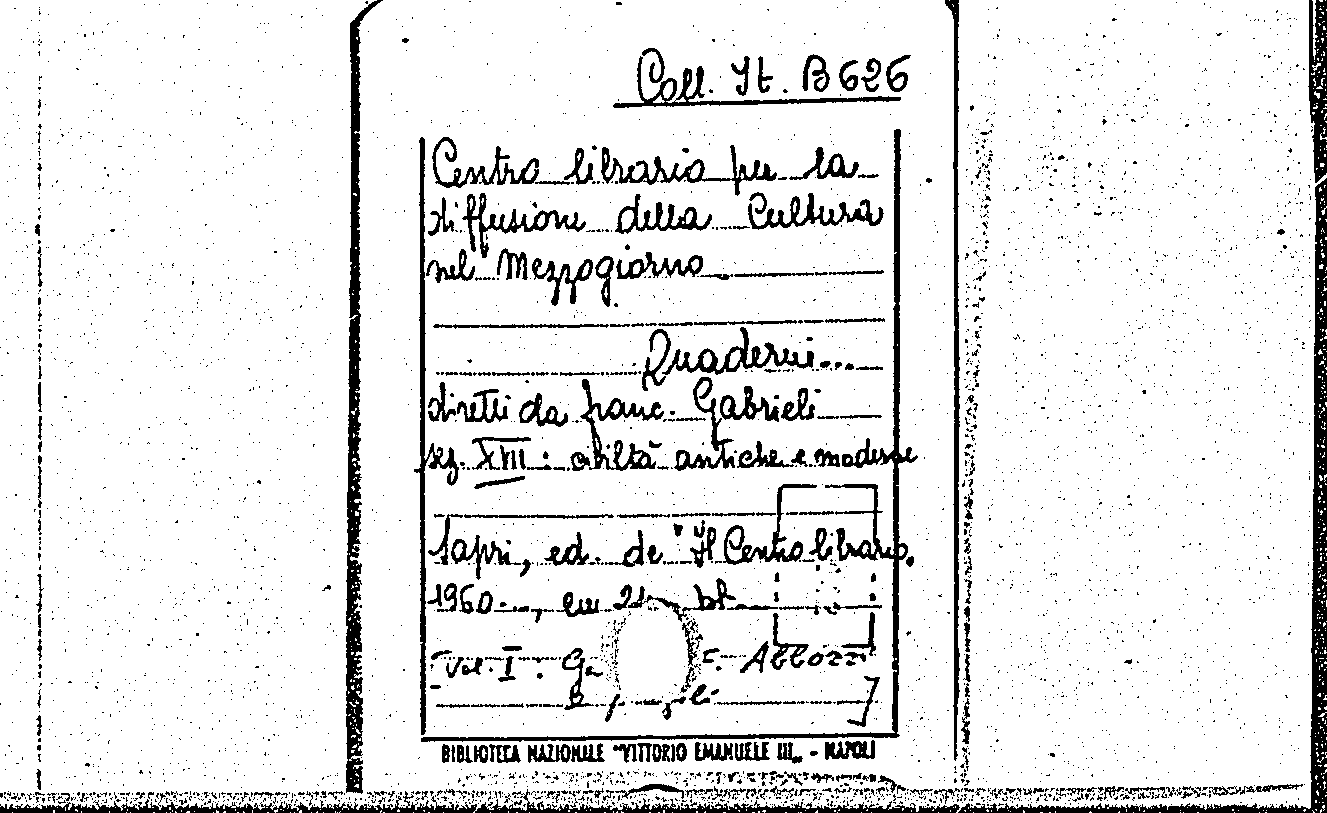 Coll. It. B 626
Centro librario per la
diffusione della Cultura
nel Mezzogiorno.
Quaderni...
diretti da franc. Gabrieli
sez. XVIII : civiltà antiche e moderne
Sapri, ed. de "Il Centro librario,
1960..., cm 21 bl.
[Vol. I : Ga F. Abbozzi
]
BIBLIOTECA NAZIONALE "VITTORIO EMANUELE III„ - NAPOLI